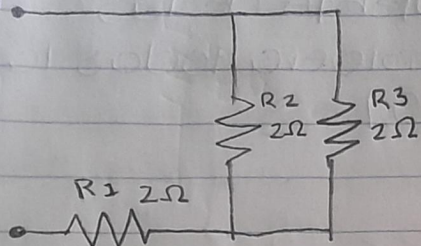 R2
2Ω
R3
2Ω
R1 2Ω